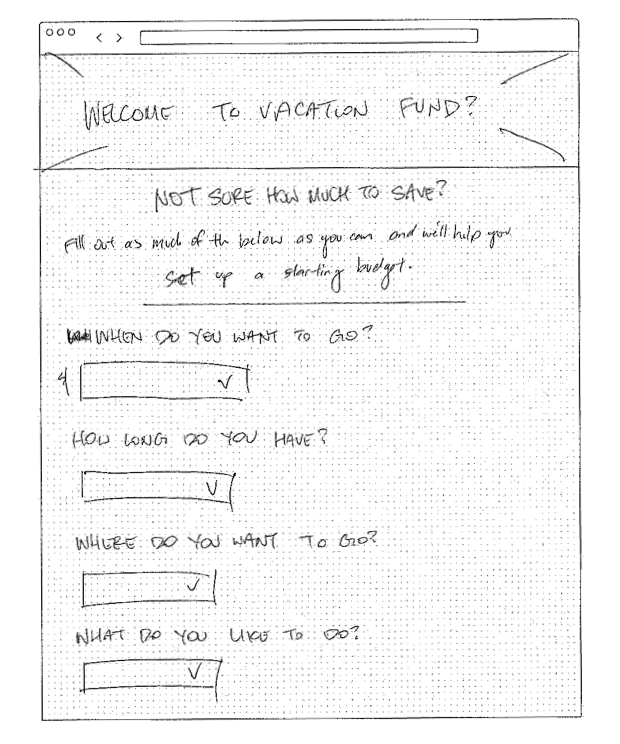 WELCOME TO VACATION FUND?
NOT SURE HOW MUCH TO SAVE?
Fill out as much of the below as you can and we'll help you
set up a starting budget.
WHEN DO YOU WANT TO GO?
HOW LONG DO YOU HAVE?
WHERE DO YOU WANT TO GO?
WHAT DO YOU LIKE TO DO?